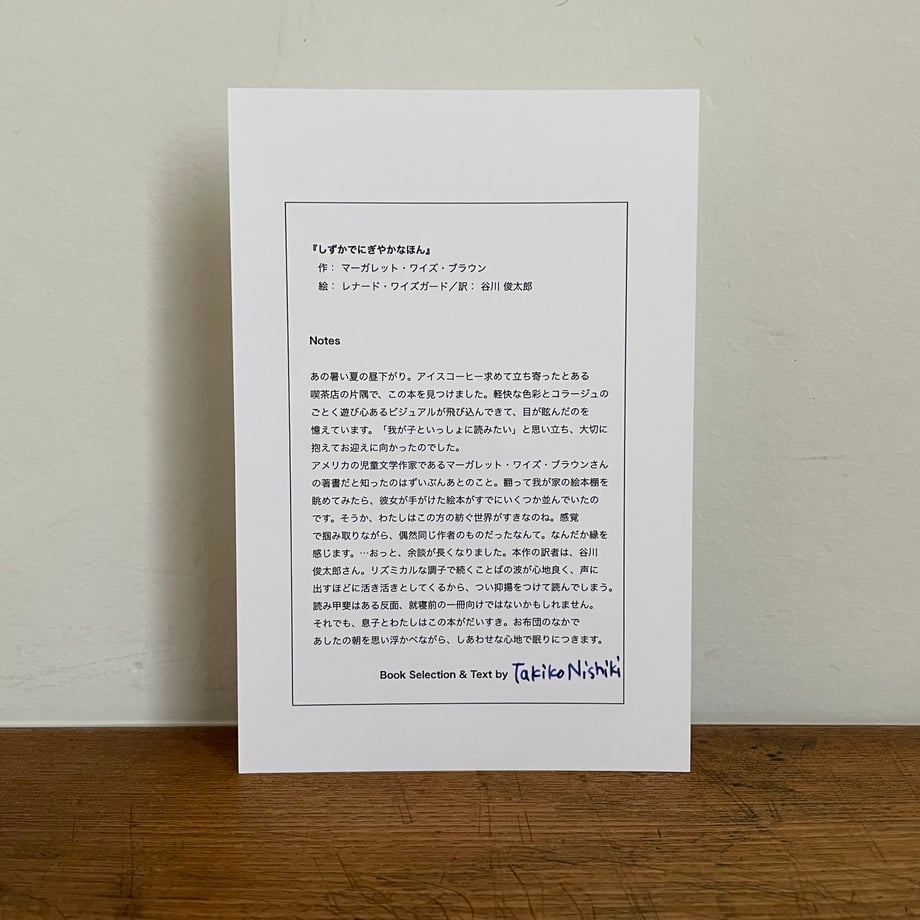 『しずかでにぎやかなほん』
作： マーガレット・ワイズ・ブラウン
絵： レナード・ワイズガード／訳： 谷川 俊太郎
Notes
あの暑い夏の昼下がり。アイスコーヒー求めて立ち寄ったとある
喫茶店の片隅で、この本を見つけました。軽快な色彩とコラージュの
ごとく遊び心あるビジュアルが飛び込んできて、目が眩んだのを
憶えています。「我が子といっしょに読みたい」と思い立ち、大切に
抱えてお迎えに向かったのでした。
アメリカの児童文学作家であるマーガレット・ワイズ・ブラウンさん
の著書だと知ったのはずいぶんあとのこと。翻って我が家の絵本棚を
眺めてみたら、彼女が手がけた絵本がすでにいくつか並んでいたの
です。そうか、わたしはこの方の紡ぐ世界がすきなのね。感覚
で掴み取りながら、偶然同じ作者のものだったなんて。なんだか縁を
感じます。…おっと、余談が長くなりました。本作の訳者は、谷川
俊太郎さん。リズミカルな調子で続くことばの波が心地良く、声に
出すほどに活き活きとしてくるから、つい抑揚をつけて読んでしまう。
読み甲斐はある反面、就寝前の一冊向けではないかもしれません。
それでも、息子とわたしはこの本がだいすき。お布団のなかで
あしたの朝を思い浮かべながら、しあわせな心地で眠りにつきます。
Book Selection & Text by Takiko Nishiki